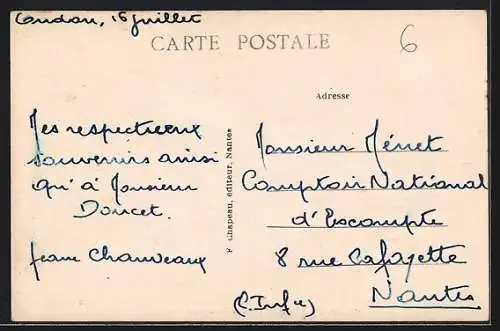 Oudon, 16 juillet
CARTE POSTALE
6
Adresse
Mes respectueux
souvenirs ainsi
qu'à Monsieur
Doucet.
Jean Chauveaux
F. Chapeau, éditeur, Nantes
Monsieur Ménet
Comptoir National
d'Escompte
8 rue Lafayette
Nantes
(L. Infre)